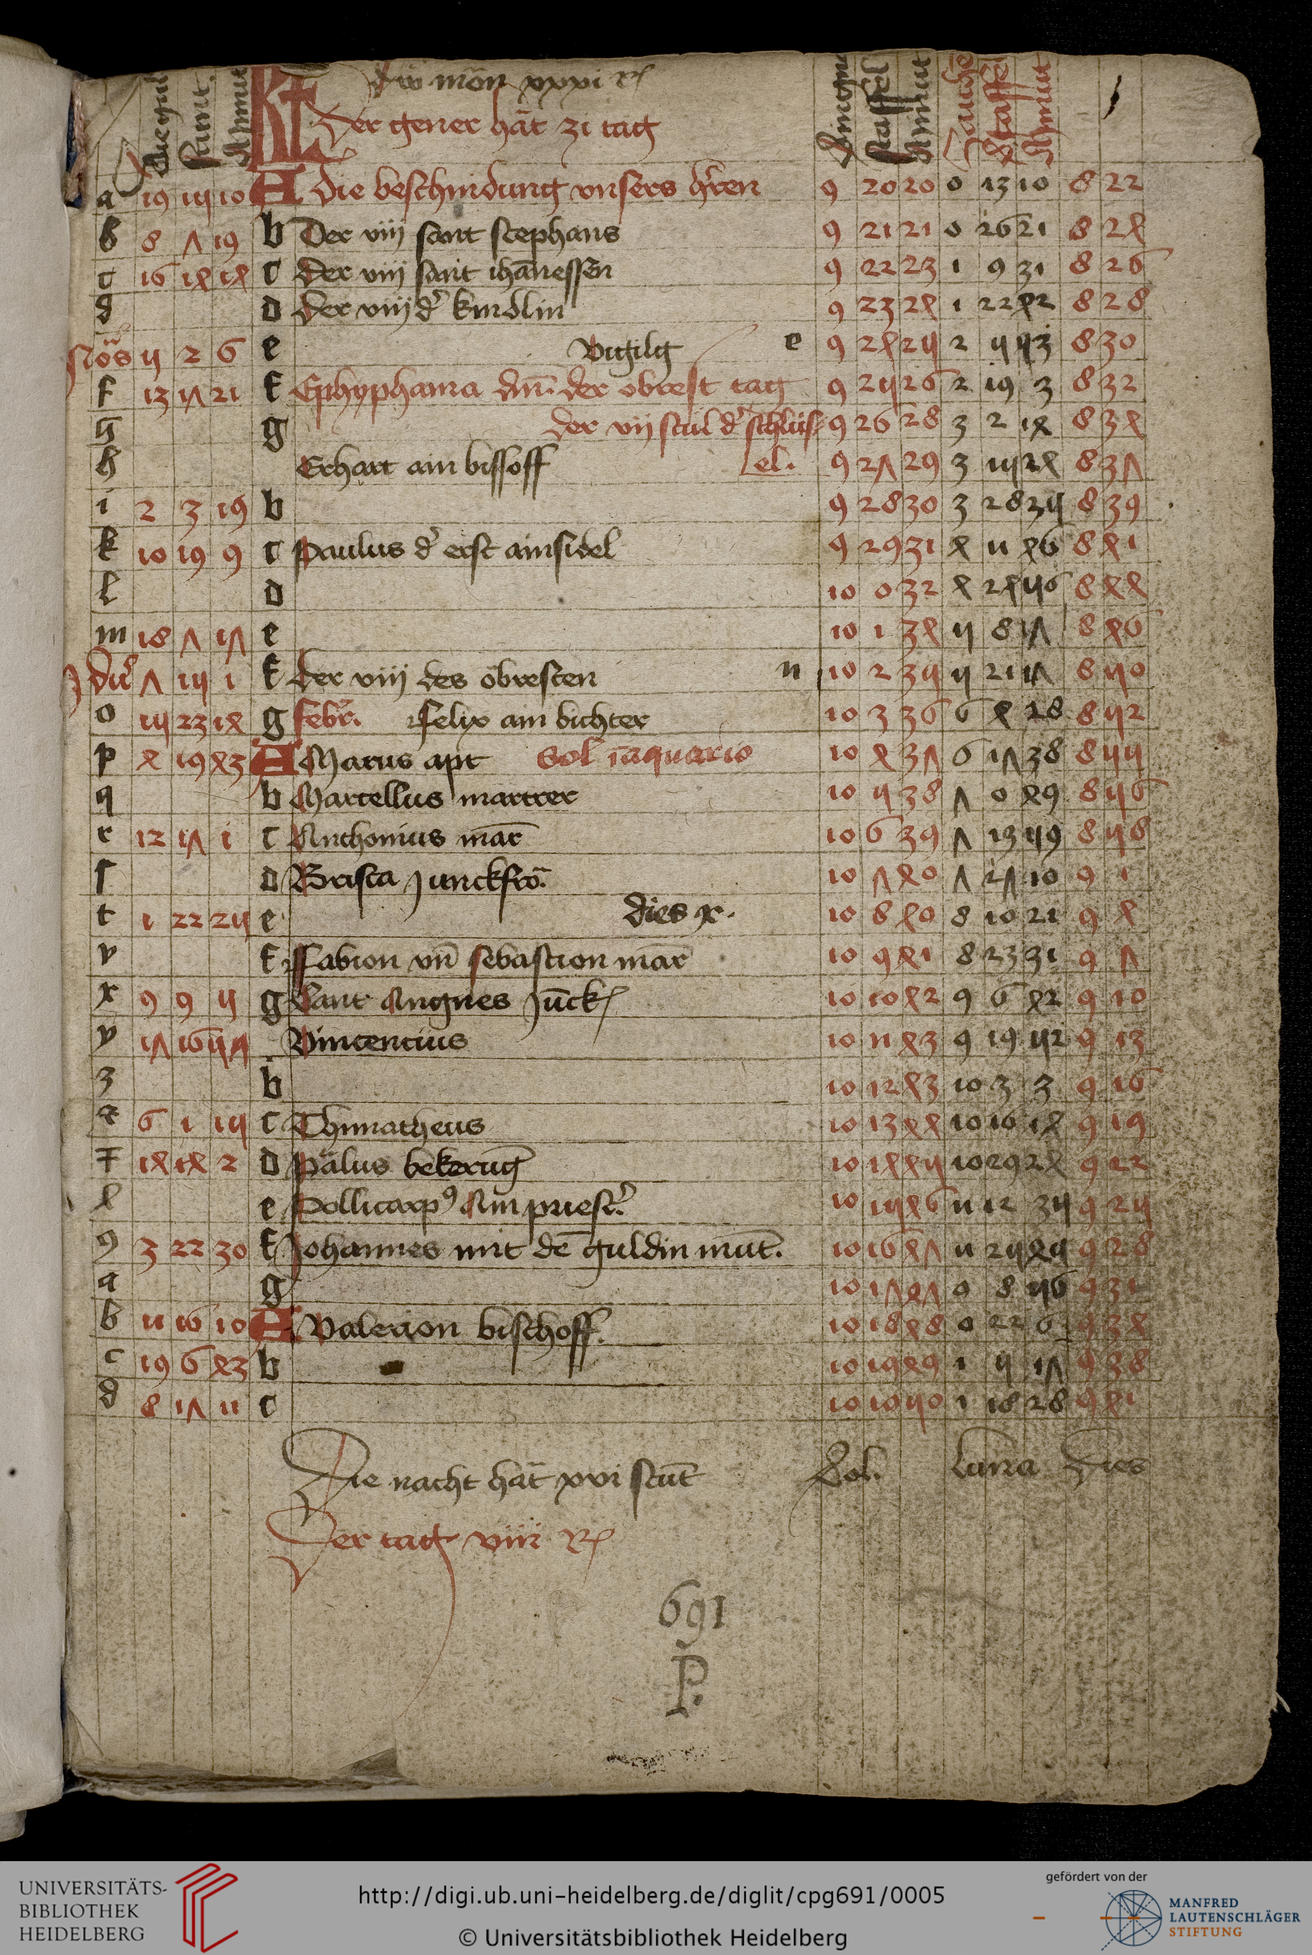 Der gener hat 31 tag
a 19 14 10 A Die beschnidung vnsers hren 9 20 20 0 13 10 8 22
b 8 7 19 b Der viii sant stephans 9 21 21 0 26 21 8 24
c 16 14 14 c der viii sant ihanessen 9 22 23 1 9 31 8 26
d d der viii d kindlin 9 23 24 1 22 42 8 28
5 2 6 e Vigilg e 9 24 25 2 5 53 8 30
f 13 17 21 f Ephyphania dni der obrest tag 9 25 26 2 19 3 8 32
g g der vii scul d schlus= 9 26 28 3 2 14 8 34
h Erhart ain bissoff el. 9 27 29 3 15 24 8 37
i 2 3 19 b 9 28 30 3 28 35 8 39
k 10 19 9 c Paulus d erst ainsidel 9 29 31 4 11 46 8 41
l d 10 0 32 4 24 56 8 44
m 18 7 17 e 10 1 34 5 8 17 8 46
7 15 1 f der viii des obresten n 10 2 35 5 21 17 8 50
o 15 23 14 g febr. felix ain bichter 10 3 36 6 4 28 8 52
p 4 19 43 A Marus apt Sol in aquario 10 4 37 6 17 38 8 55
q b Marcellus martrer 10 5 38 7 0 49 8 56
r 12 17 1 c Anthonius mar 10 6 39 7 13 59 8 58
s d Brisca junckfro 10 7 40 7 27 10 9 1
t 1 22 25 e dies 10 8 40 8 10 21 9 4
v f Fabion vn sebastion mar 10 9 41 8 23 31 9 7
x 9 9 5 g Sant Angnes junck 10 10 42 9 6 42 9 10
y 17 16 57 Vincencius 10 11 43 9 19 52 9 13
z b 10 12 43 10 3 3 9 16
6 1 15 c Thimatheus 10 13 44 10 16 14 9 19
14 14 2 d Palus bekerung 10 14 45 10 29 24 9 22
e Pollicarp9 Ain priest 10 15 46 11 12 35 9 25
3 22 30 f Johannes mit de guldin mut. 10 16 47 11 25 45 9 28
a g 10 17 47 0 8 56 9 31
b 11 16 10 A Valerion bischoff. 10 18 48 0 22 6 9 34
c 19 6 43 b 10 19 49 1 5 17 9 38
d 8 17 11 c 10 20 50 1 18 28 9 41
Die nacht hat xvi stund Sol. Luna Dies
Der tag viii
691
P.
UNIVERSITÄTS-
BIBLIOTHEK
HEIDELBERG
http://digi.ub.uni-heidelberg.de/diglit/cpg691/0005
© Universitätsbibliothek Heidelberg
gefördert von der
MANFRED
LAUTENSCHLÄGER
STIFTUNG